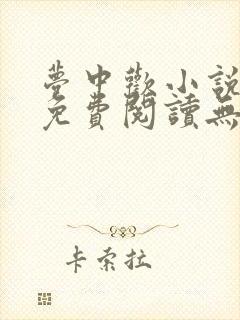 夢中歡小說
免費閱讀無
卡索拉